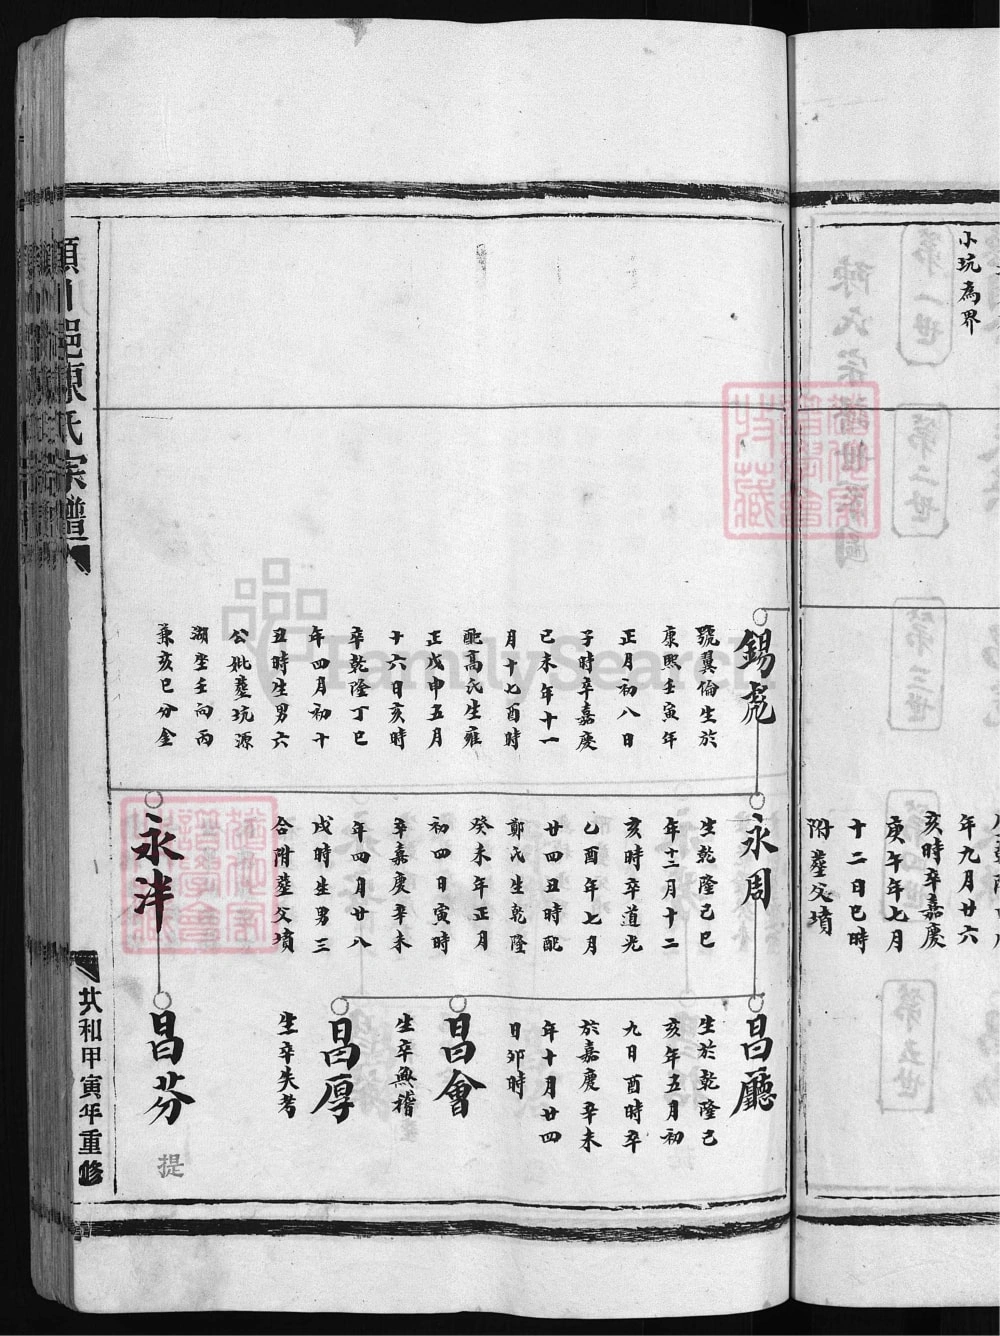 小坑為界
年九月廿六
亥時卒嘉慶
庚午年七月
十二日巳時
附葬父墳
錫彪
號翼倫生於
康熙壬寅年
正月初八日
子時卒嘉慶
己未年十一
月十七酉時
配高氏生雍
正戊申五月
十六日亥時
卒乾隆丁巳
年四月初十
丑時生男六
公妣葬坑源
湖坐壬向丙
兼亥巳分金
永周
生乾隆己巳
年十二月十二
亥時卒道光
乙酉年七月
廿四丑時配
鄭氏生乾隆
癸未年正月
初四日寅時
卒嘉慶辛未
年四月廿八
戌時生男三
合附葬父墳
永泮
昌廳
生於乾隆己
亥年五月初
九日酉時卒
於嘉慶辛未
年十月廿四
日卯時
昌會
生卒無稽
昌厚
生卒失考
昌芬
提
邑陳氏宗譜
共和甲寅年重修
FamilySearch